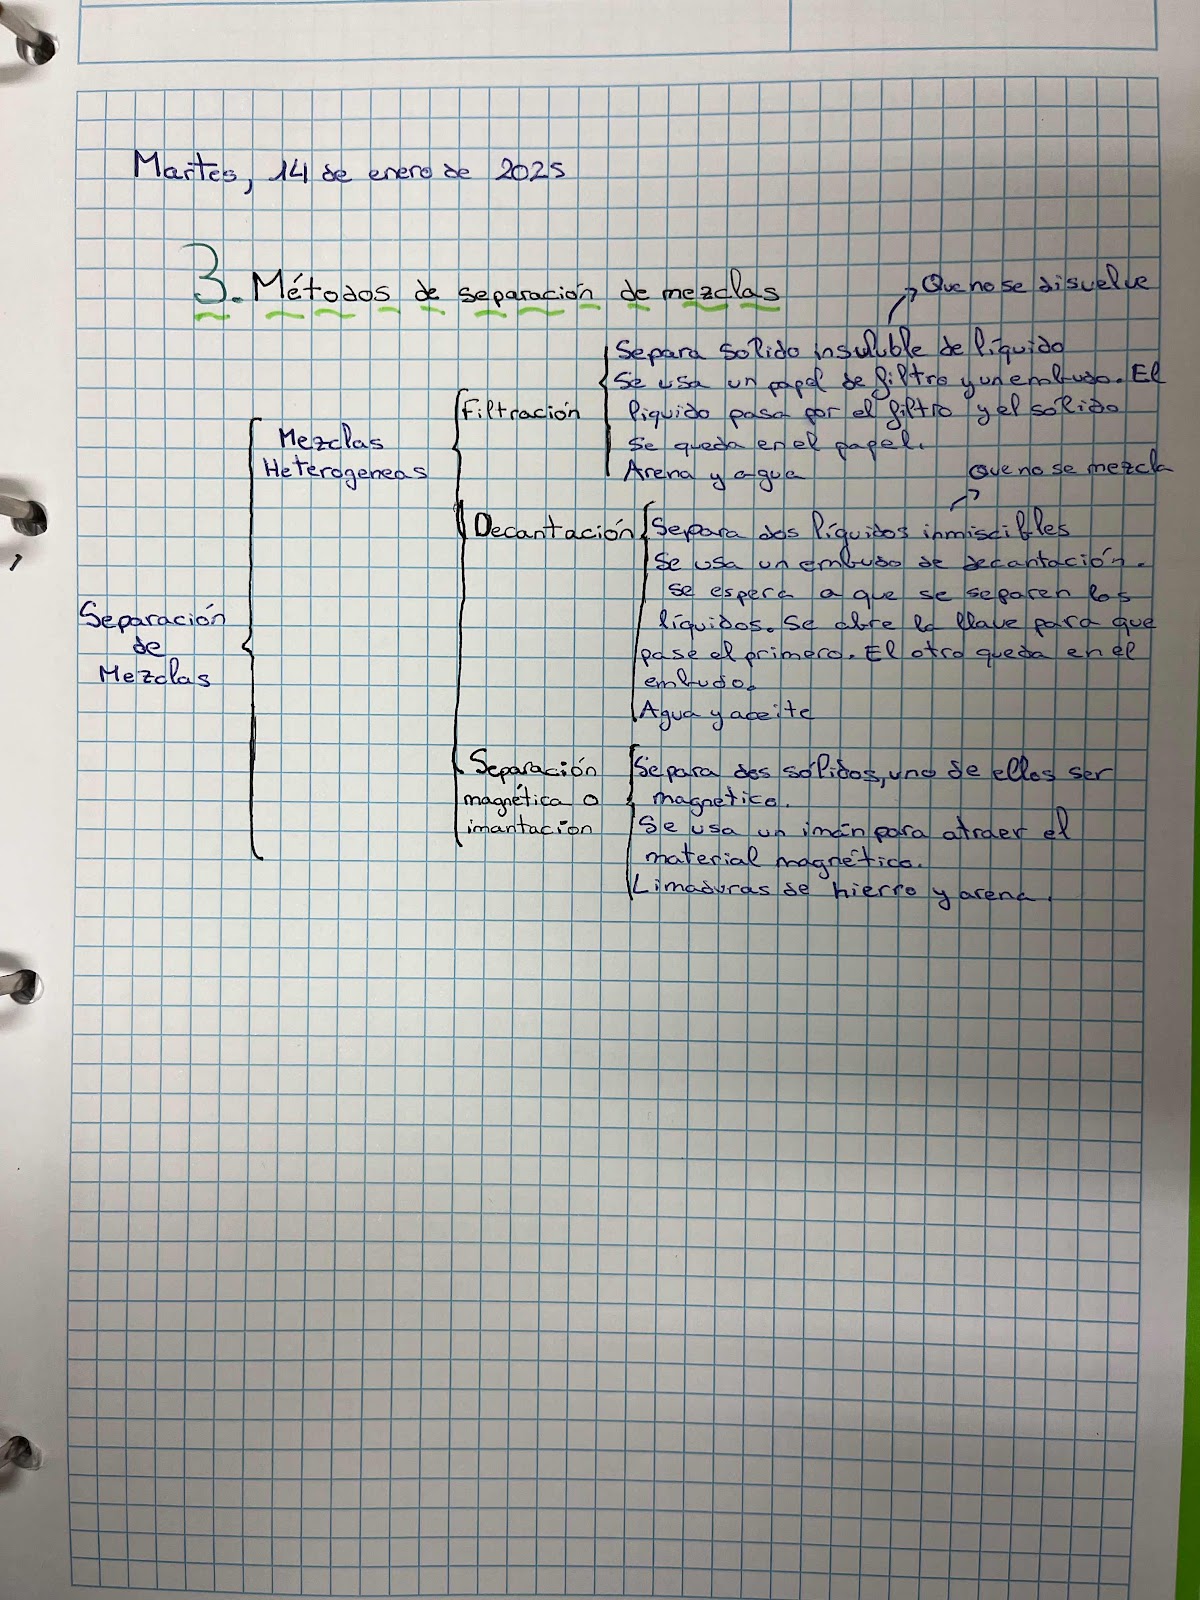 Martes, 14 de enero de 2025
3. Métodos de separación de mezclas
Que no se disuelve
Separa solido insuluble de líquido
Se usa un papel de filtro y un embudo. El
líquido pasa por el filtro y el sólido
se queda en el papel.
Arena y agua
Filtración
Mezclas
Heterogeneas
Que no se mezcla
Decantación
Separa dos líquidos inmiscibles
Se usa un embudo de decantación.
se espera a que se separen los
líquidos. Se abre la llave para que
pase el primero. El otro queda en el
embudo.
Agua y aceite
Separación
de
Mezclas
Separación
magnética o
imantación
Separa dos sólidos, uno de ellos ser
magnetico.
Se usa un imán para atraer el
material magnético.
Limaduras de hierro y arena.